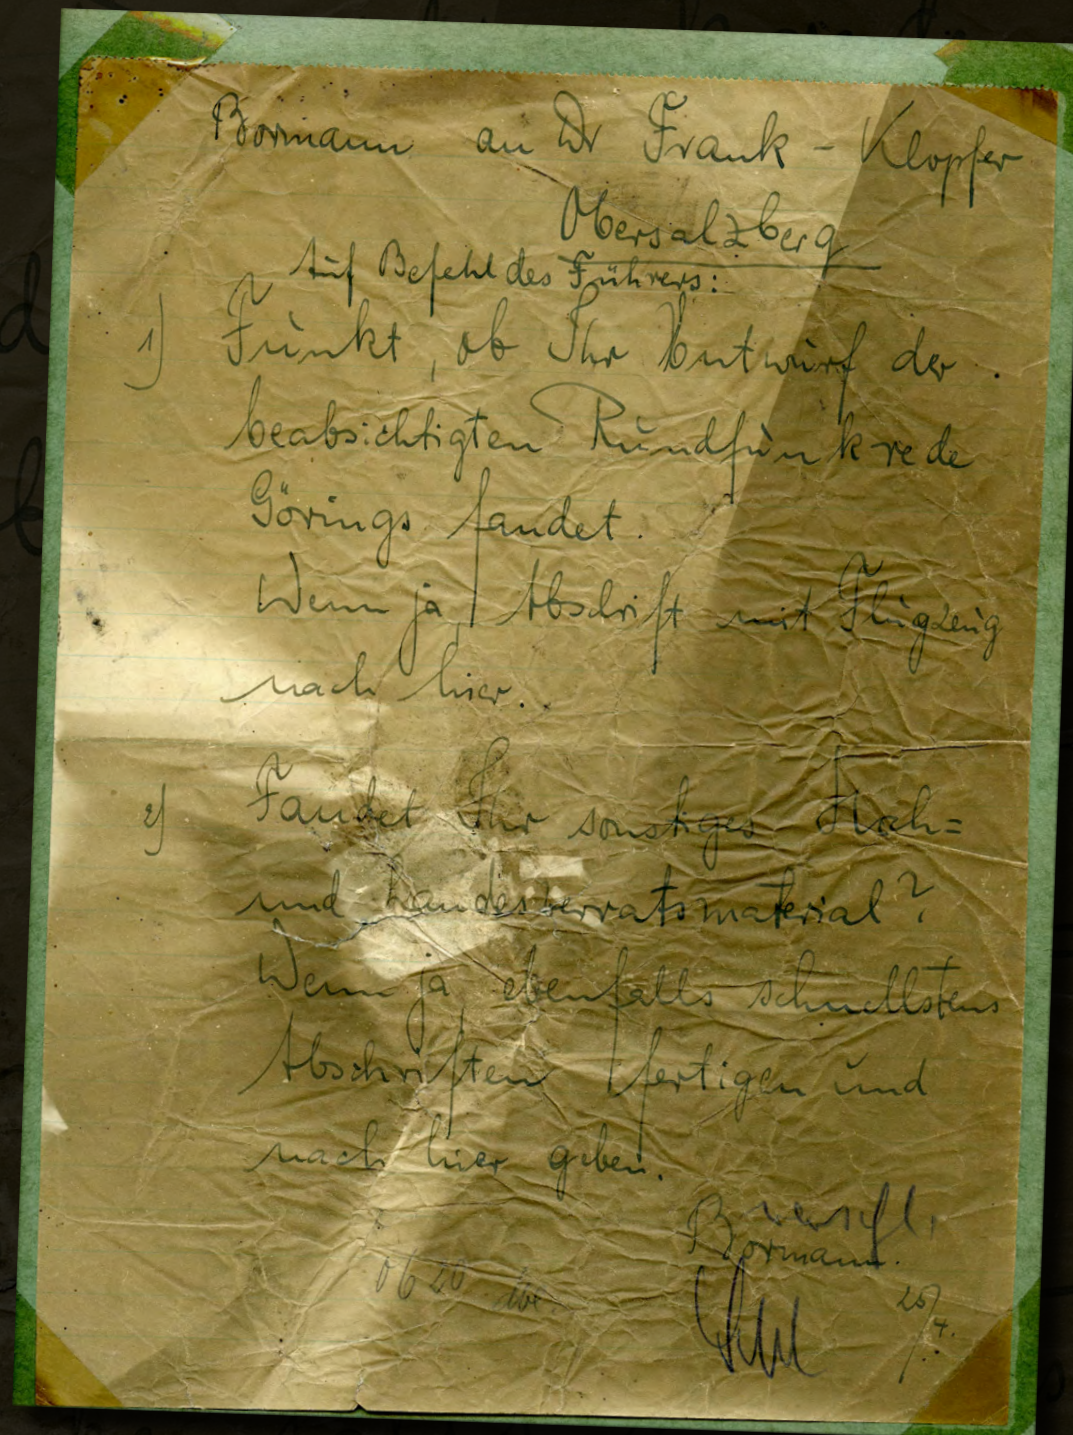 Bormann an Dr Frank - Klopfer
Obersalzberg
Auf Befehl des Führers:
1) Funkt, ob Ihr Entwurf der
beabsichtigten Rundfunkrede
Görings fandet.
Wenn ja, Abschrift mit Flugzeug
nach hier.
2) Fandet Ihr sonstiges Hoch=
und Landesverratsmaterial?
Wenn ja, ebenfalls schnellstens
Abschriften fertigen und
nach hier geben.
verschl.
Bormann.
25/4.